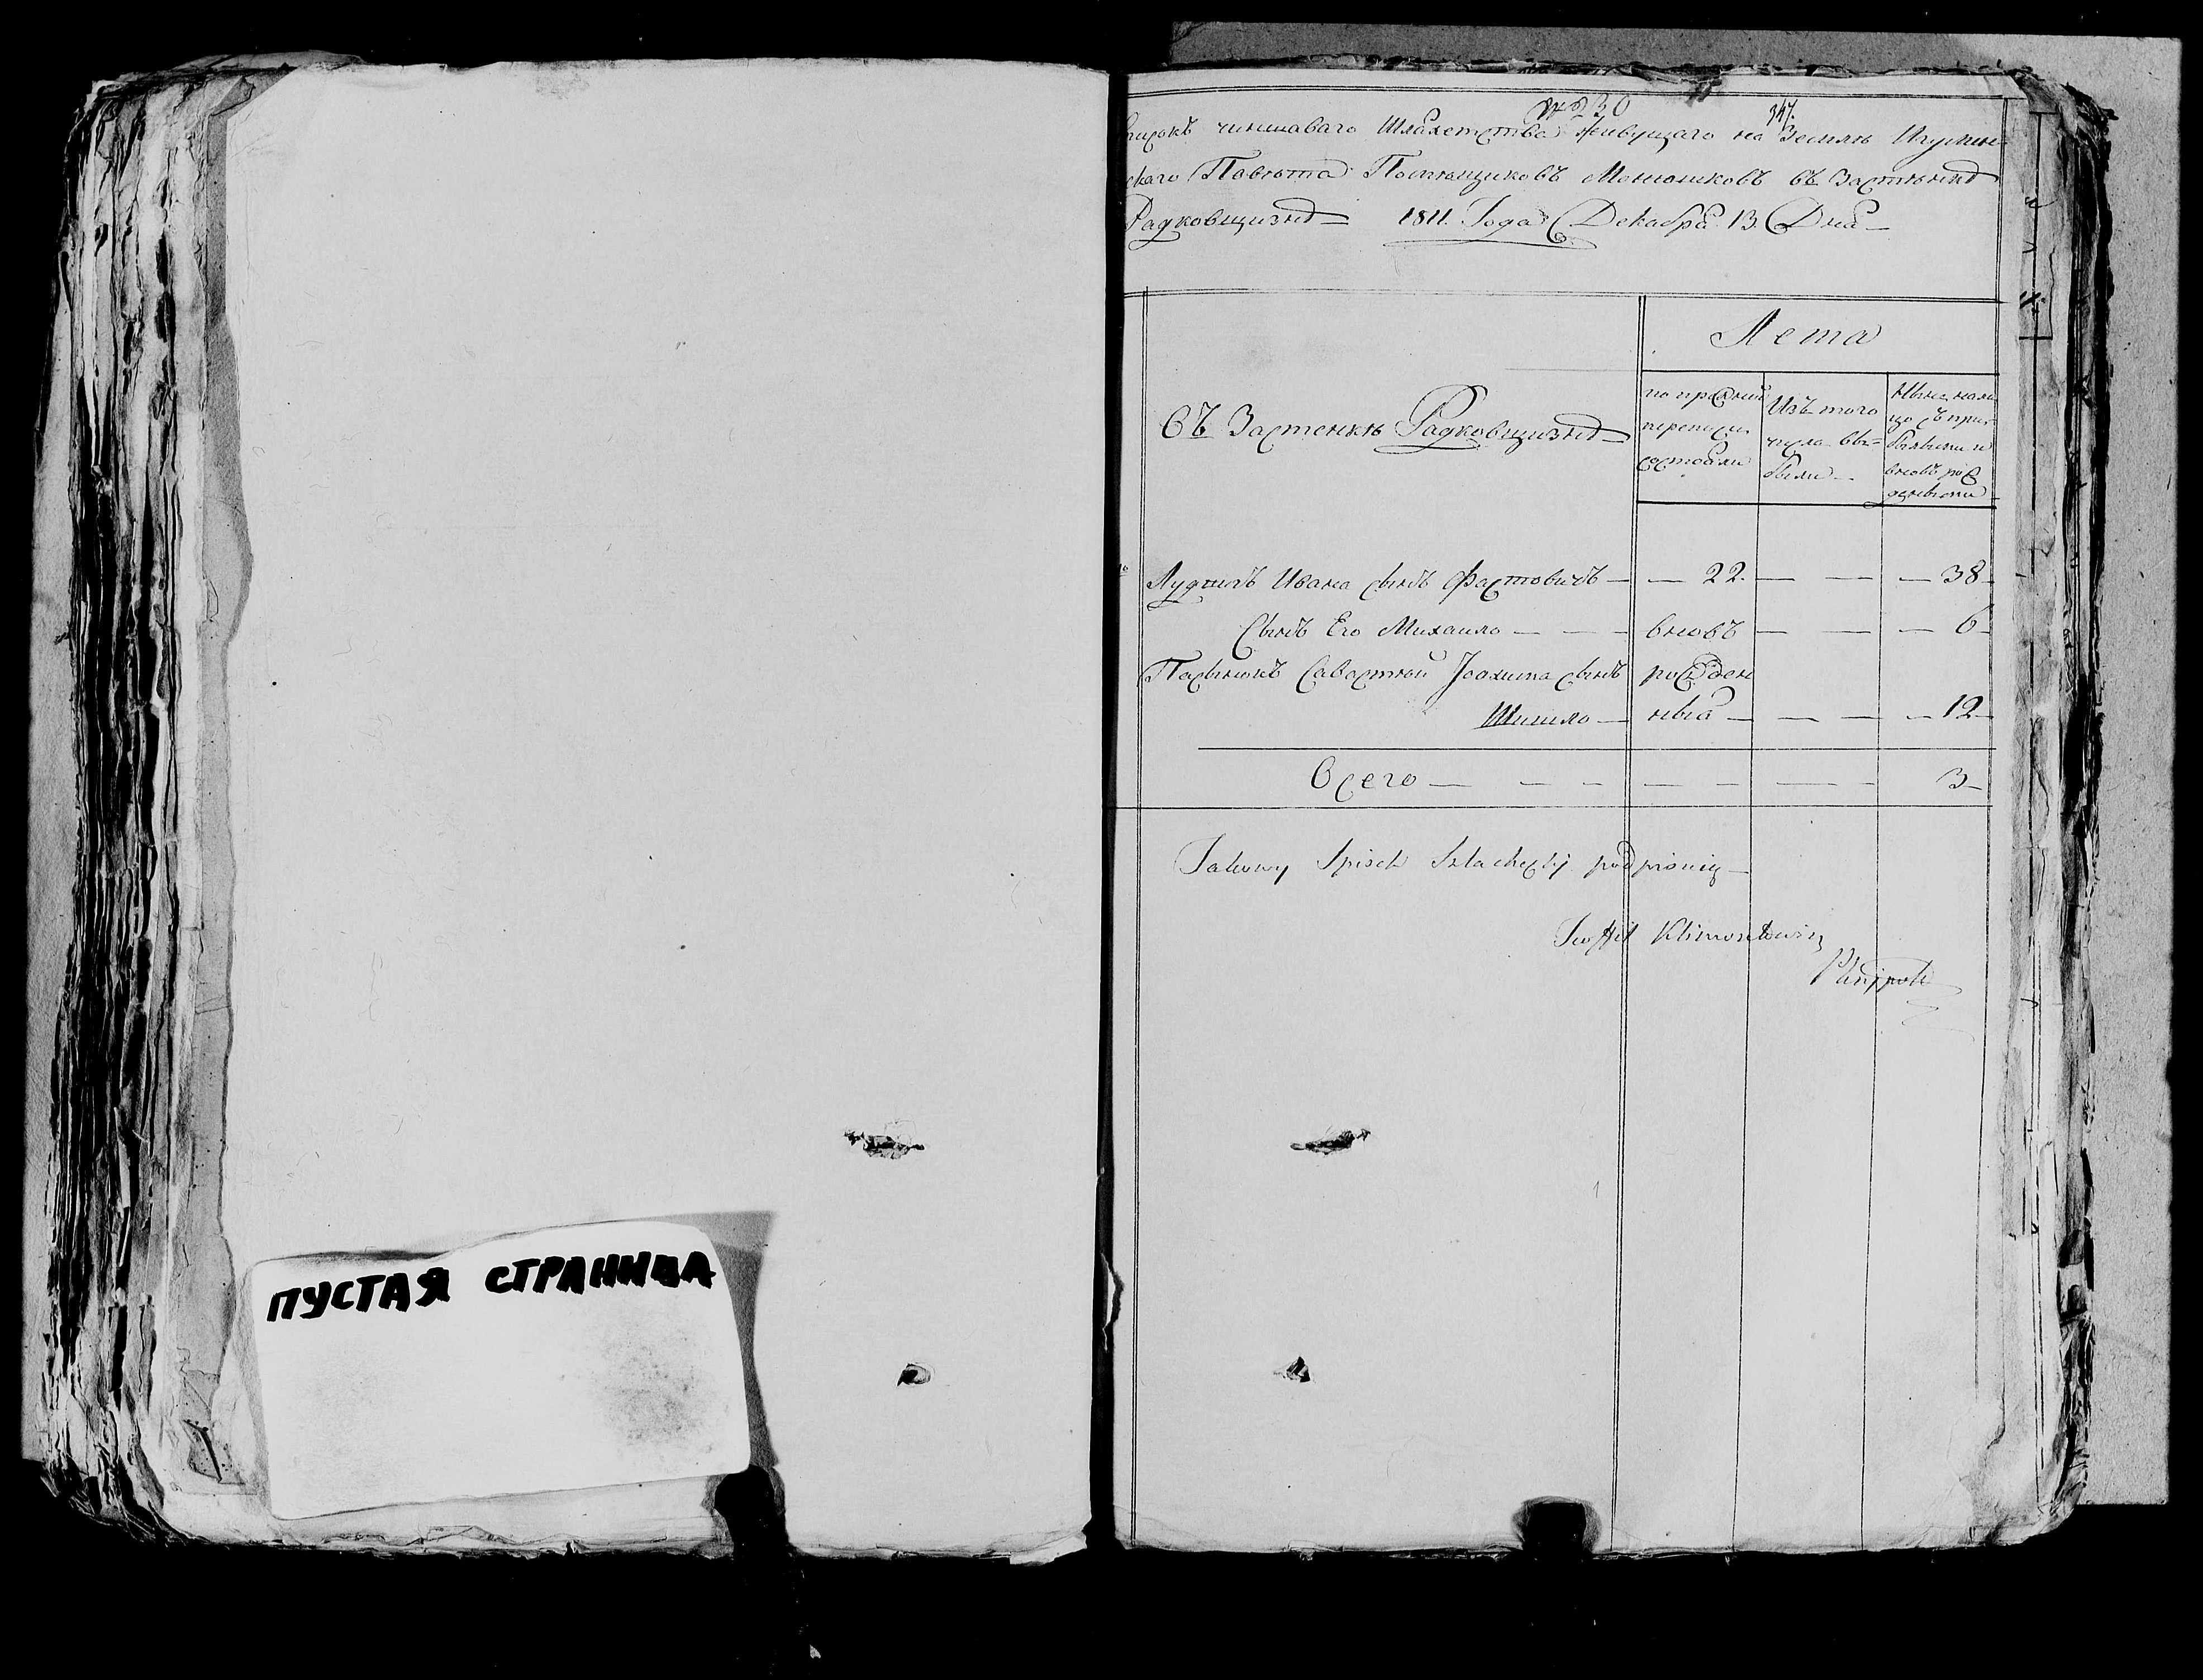 ПУСТАЯ СТРАНИЦА
№ 230
347.
Списокъ чиншаваго Шляхетства Живущаго на Землѣ Игумен
скаго Павѣта Помѣщиковъ Монюшковъ въ Застѣнкѣ
Радковщизнѣ 1811. Года Декабря 13. Дня
Лета
Въ Застенкѣ Радковщизнѣ
по прежней
переписи
состояли
Изъ того
числа вы=
были
Нынѣ нали
цо съ при
былыми и
вновь рож
денными
Лудвигъ Ивана сынъ Фастовичъ — — 22. — — — 38
Сынъ Его Михаило — — — вновь — — — 6
Пасынокъ Савостѣй Іоахима сынъ рожден
Шишло — ныя — — — — 12
Всего — — — — — — — — 3
Takowy Spisek Szlachecki podpisuię
Klimontowicz